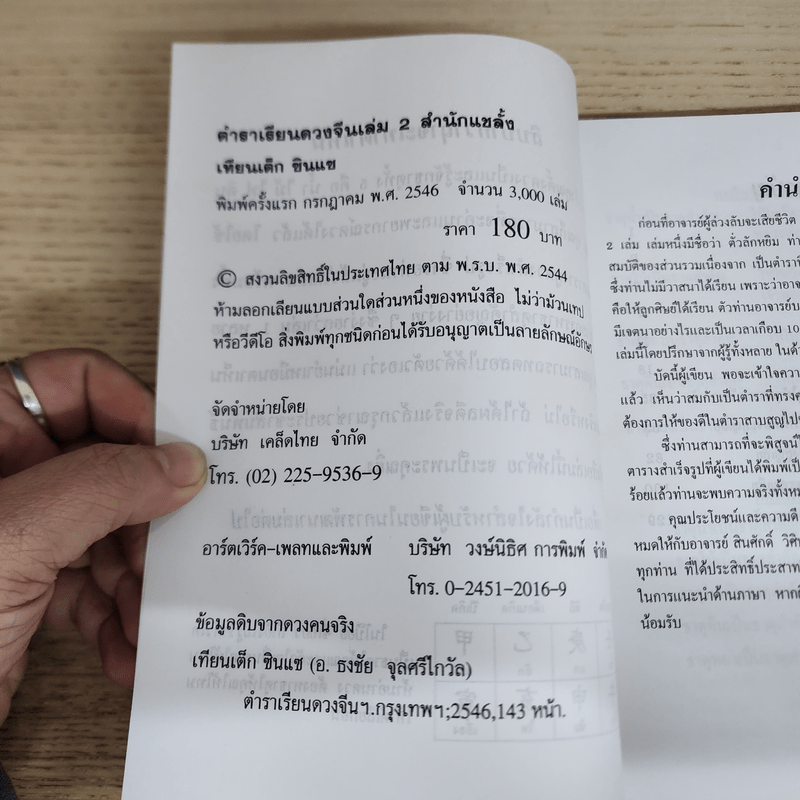 ตำราเรียนดวงจีนเล่ม 2 สำนักแชลั้ง
เทียนเต็ก ซินแซ
พิมพ์ครั้งแรก กรกฎาคม พ.ศ. 2546 จำนวน 3,000 เล่ม
ราคา 180 บาท
© สงวนลิขสิทธิ์ในประเทศไทย ตาม พ.ร.บ. พ.ศ. 2544
ห้ามลอกเลียนแบบส่วนใดส่วนหนึ่งของหนังสือ ไม่ว่าม้วนเทป
หรือวีดีโอ สิ่งพิมพ์ทุกชนิดก่อนได้รับอนุญาตเป็นลายลักษณ์อักษร
จัดจำหน่ายโดย
บริษัท เคล็ดไทย จำกัด
โทร. (02) 225-9536-9
อาร์ตเวิร์ค-เพลทและพิมพ์ บริษัท วงษ์นิธิศ การพิมพ์ จำกัด
โทร. 0-2451-2016-9
ข้อมูลดิบจากดวงคนจริง
เทียนเต็ก ซินแซ (อ. ธงชัย จุลศรีไกวัล)
ตำราเรียนดวงจีนฯ.กรุงเทพฯ;2546,143 หน้า.
คำนำ
ก่อนที่อาจารย์ผู้ล่วงลับจะเสียชีวิต
2 เล่ม เล่มหนึ่งมีชื่อว่า ตั่วลักหยิม ท่า
สมบัติของส่วนรวมเนื่องจาก เป็นตำราที่
ซึ่งท่านไม่มีวาสนาได้เรียน เพราะว่าอาจ
คือให้ลูกศิษย์ได้เรียน ตัวท่านอาจารย์บ
มีเจตนาอย่างไรและเป็นเวลาเกือบ 10
เล่มนี้โดยปรึกษาจากผู้รู้ทั้งหลาย ในด้
บัดนี้ผู้เขียน พอจะเข้าใจความ
แล้ว เห็นว่าสมกับเป็นตำราที่ทรงค
ต้องการให้ของดีในตำราสาบสูญไป
ซึ่งท่านสามารถที่จะพิสูจน์ไ
ตารางสำเร็จรูปที่ผู้เขียนได้พิมพ์เป็
ร้อยแล้วท่านจะพบความจริงทั้งหม
คุณประโยชน์และความดี
หมดให้กับอาจารย์ สินศักดิ์ วิศิ
ทุกท่าน ที่ได้ประสิทธิ์ประสาท
ในการแนะนำด้านภาษา หากผิ
น้อมรับ